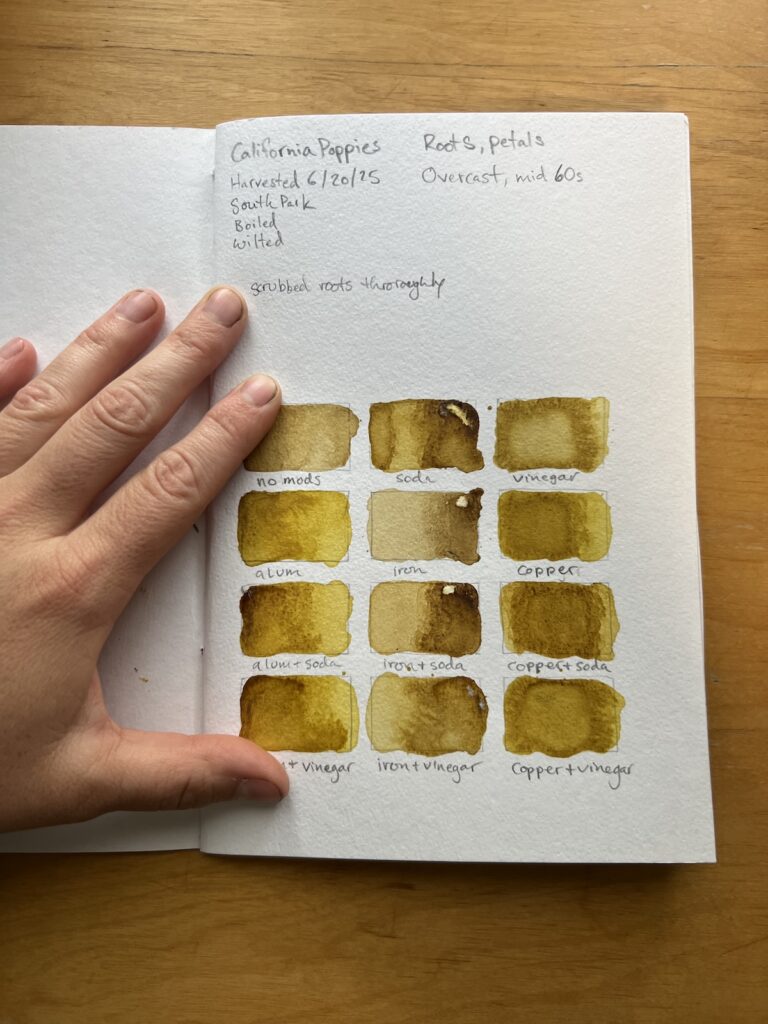 California Poppies
Roots, petals
Harvested 6/20/25
Overcast, mid 60s
South Park
Boiled
wilted
scrubbed roots throroughly
no mods
soda
vinegar
alum
iron
copper
alum + soda
iron + soda
copper + soda
+ vinegar
iron + vinegar
copper + vinegar